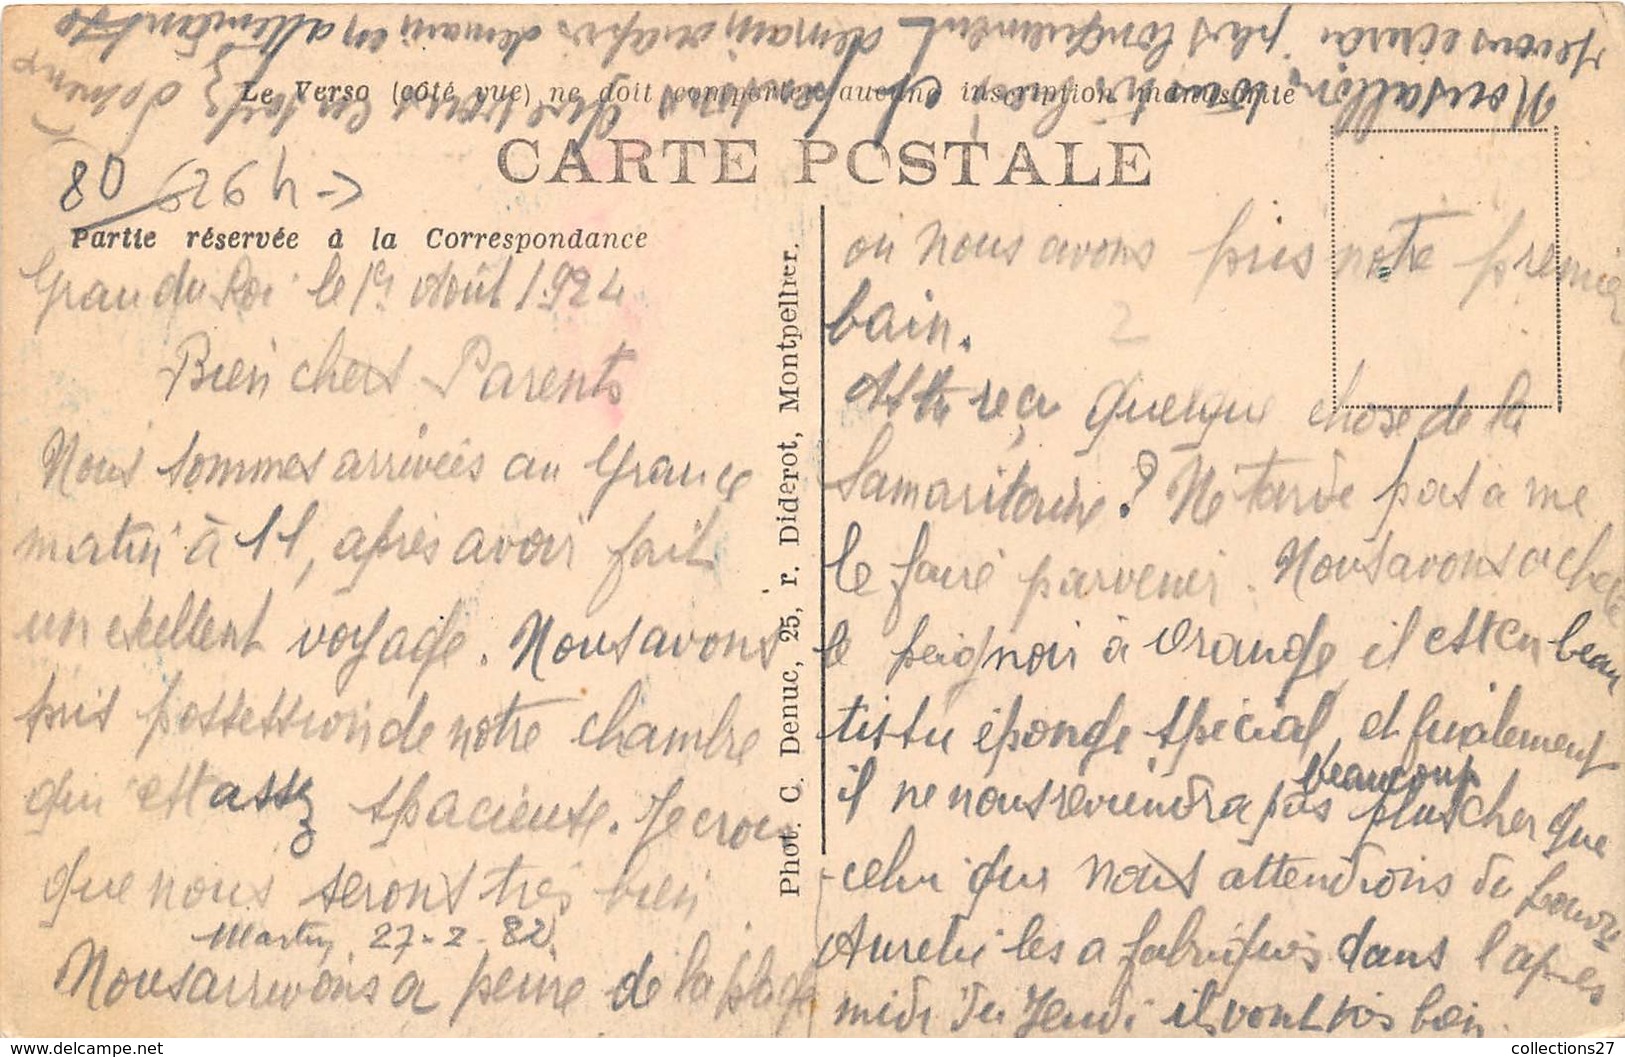 Le Verso (côté vue) ne doit comporter aucune inscription manuscrite
CARTE POSTALE
Partie réservée à la Correspondance
Grau du Roi le 1er Août 1924
Bien chers Parents
Nous sommes arrivées au Grau ce
matin à 11, après avoir fait
un exellent voyage. Nous avons
pris possession de notre chambre
qui est assez spacieuse. Je crois
que nous serons très bien
27-2-82
Nous arrivons à peine de la plage
Phot. C. Denuc, 25, r. Diderot, Montpellier.
où nous avons pris notre premier
bain.
2
As tu reçu quelque chose de la
Samaritaine? Ne tarde pas a me
le faire parvenir. Nous avons acheté
le peignoir à Orange, il est en beau
tissu éponge spécial, et finalement
beaucoup
il ne nous reviendra pas plus cher que
celui que nous attendions du Louvre
Aurélie les a fabriqués dans l'après
midi du Jeudi ils vont très bien.
Nous allons
Je vous écrirai plus longuement demain ou après demain en attendant
collections27